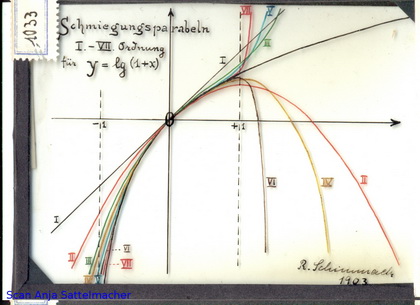 1033
Schmiegungsparabeln
I. - VII. Ordnung
für y = lg (1+x)
VII
V
III
I
-1
0
+1
I
II
III
IV
VI
VII
VI
IV
II
R. Schimmack
1903
Scan Anja Sattelmacher